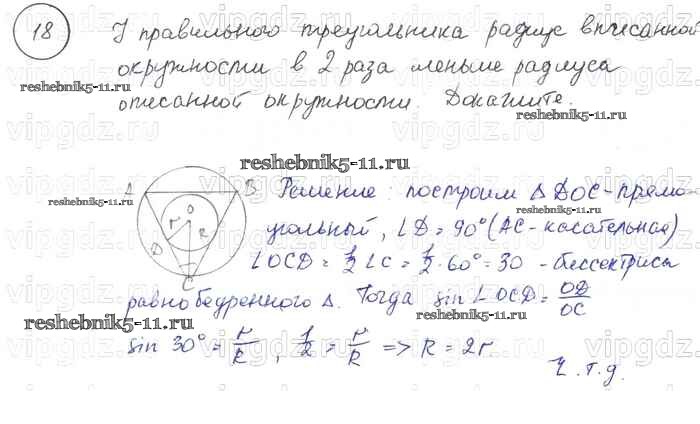 18 У правильного треугольника радиус вписанной
окружности в 2 раза меньше радиуса
описанной окружности. Докажите.
A B Решение: построим Δ DOC - прямо
O r R D C
угольный, ∠D = 90° (AC - касательная)
∠OCD = 1/2 ∠C = 1/2 · 60° = 30 - биссектриса
равнобедренного Δ. Тогда sin ∠OCD = OD/OC
sin 30° = r/R, 1/2 = r/R => R = 2r
Ч.т.д.
reshebnik5-11.ru
reshebnik5-11.ru
reshebnik5-11.ru
reshebnik5-11.ru
reshebnik5-11.ru
reshebnik5-11.ru
reshebnik5-11.ru
vipgdz.ru